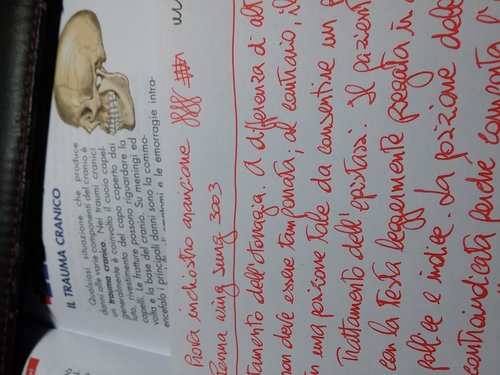 IL TRAUMA CRANICO
Qualsiasi situazione che produce
danni alle varie componenti del cranio è
un trauma cranico. Nei traumi cranici
generalmente è coinvolto il cuoio capel-
luto, rivestimento del capo coperto dai
capelli. Le fratture possono riguardare la
volta e la base del cranio. Su meningi ed
encefalo i principali danni sono la commo-
e le emorragie intra-
Prova inchiostro arancione
penna wing sung 3003
tamento dell'otorragia. A differenza di alt
non deve essere tamponata; al contrario, il
in una posizione tale da consentire un
Trattamento dell'epistassi. Il pazient
con la testa leggermente piegata in
pollice e indice. La posizione dell
controindicata perché comporta l